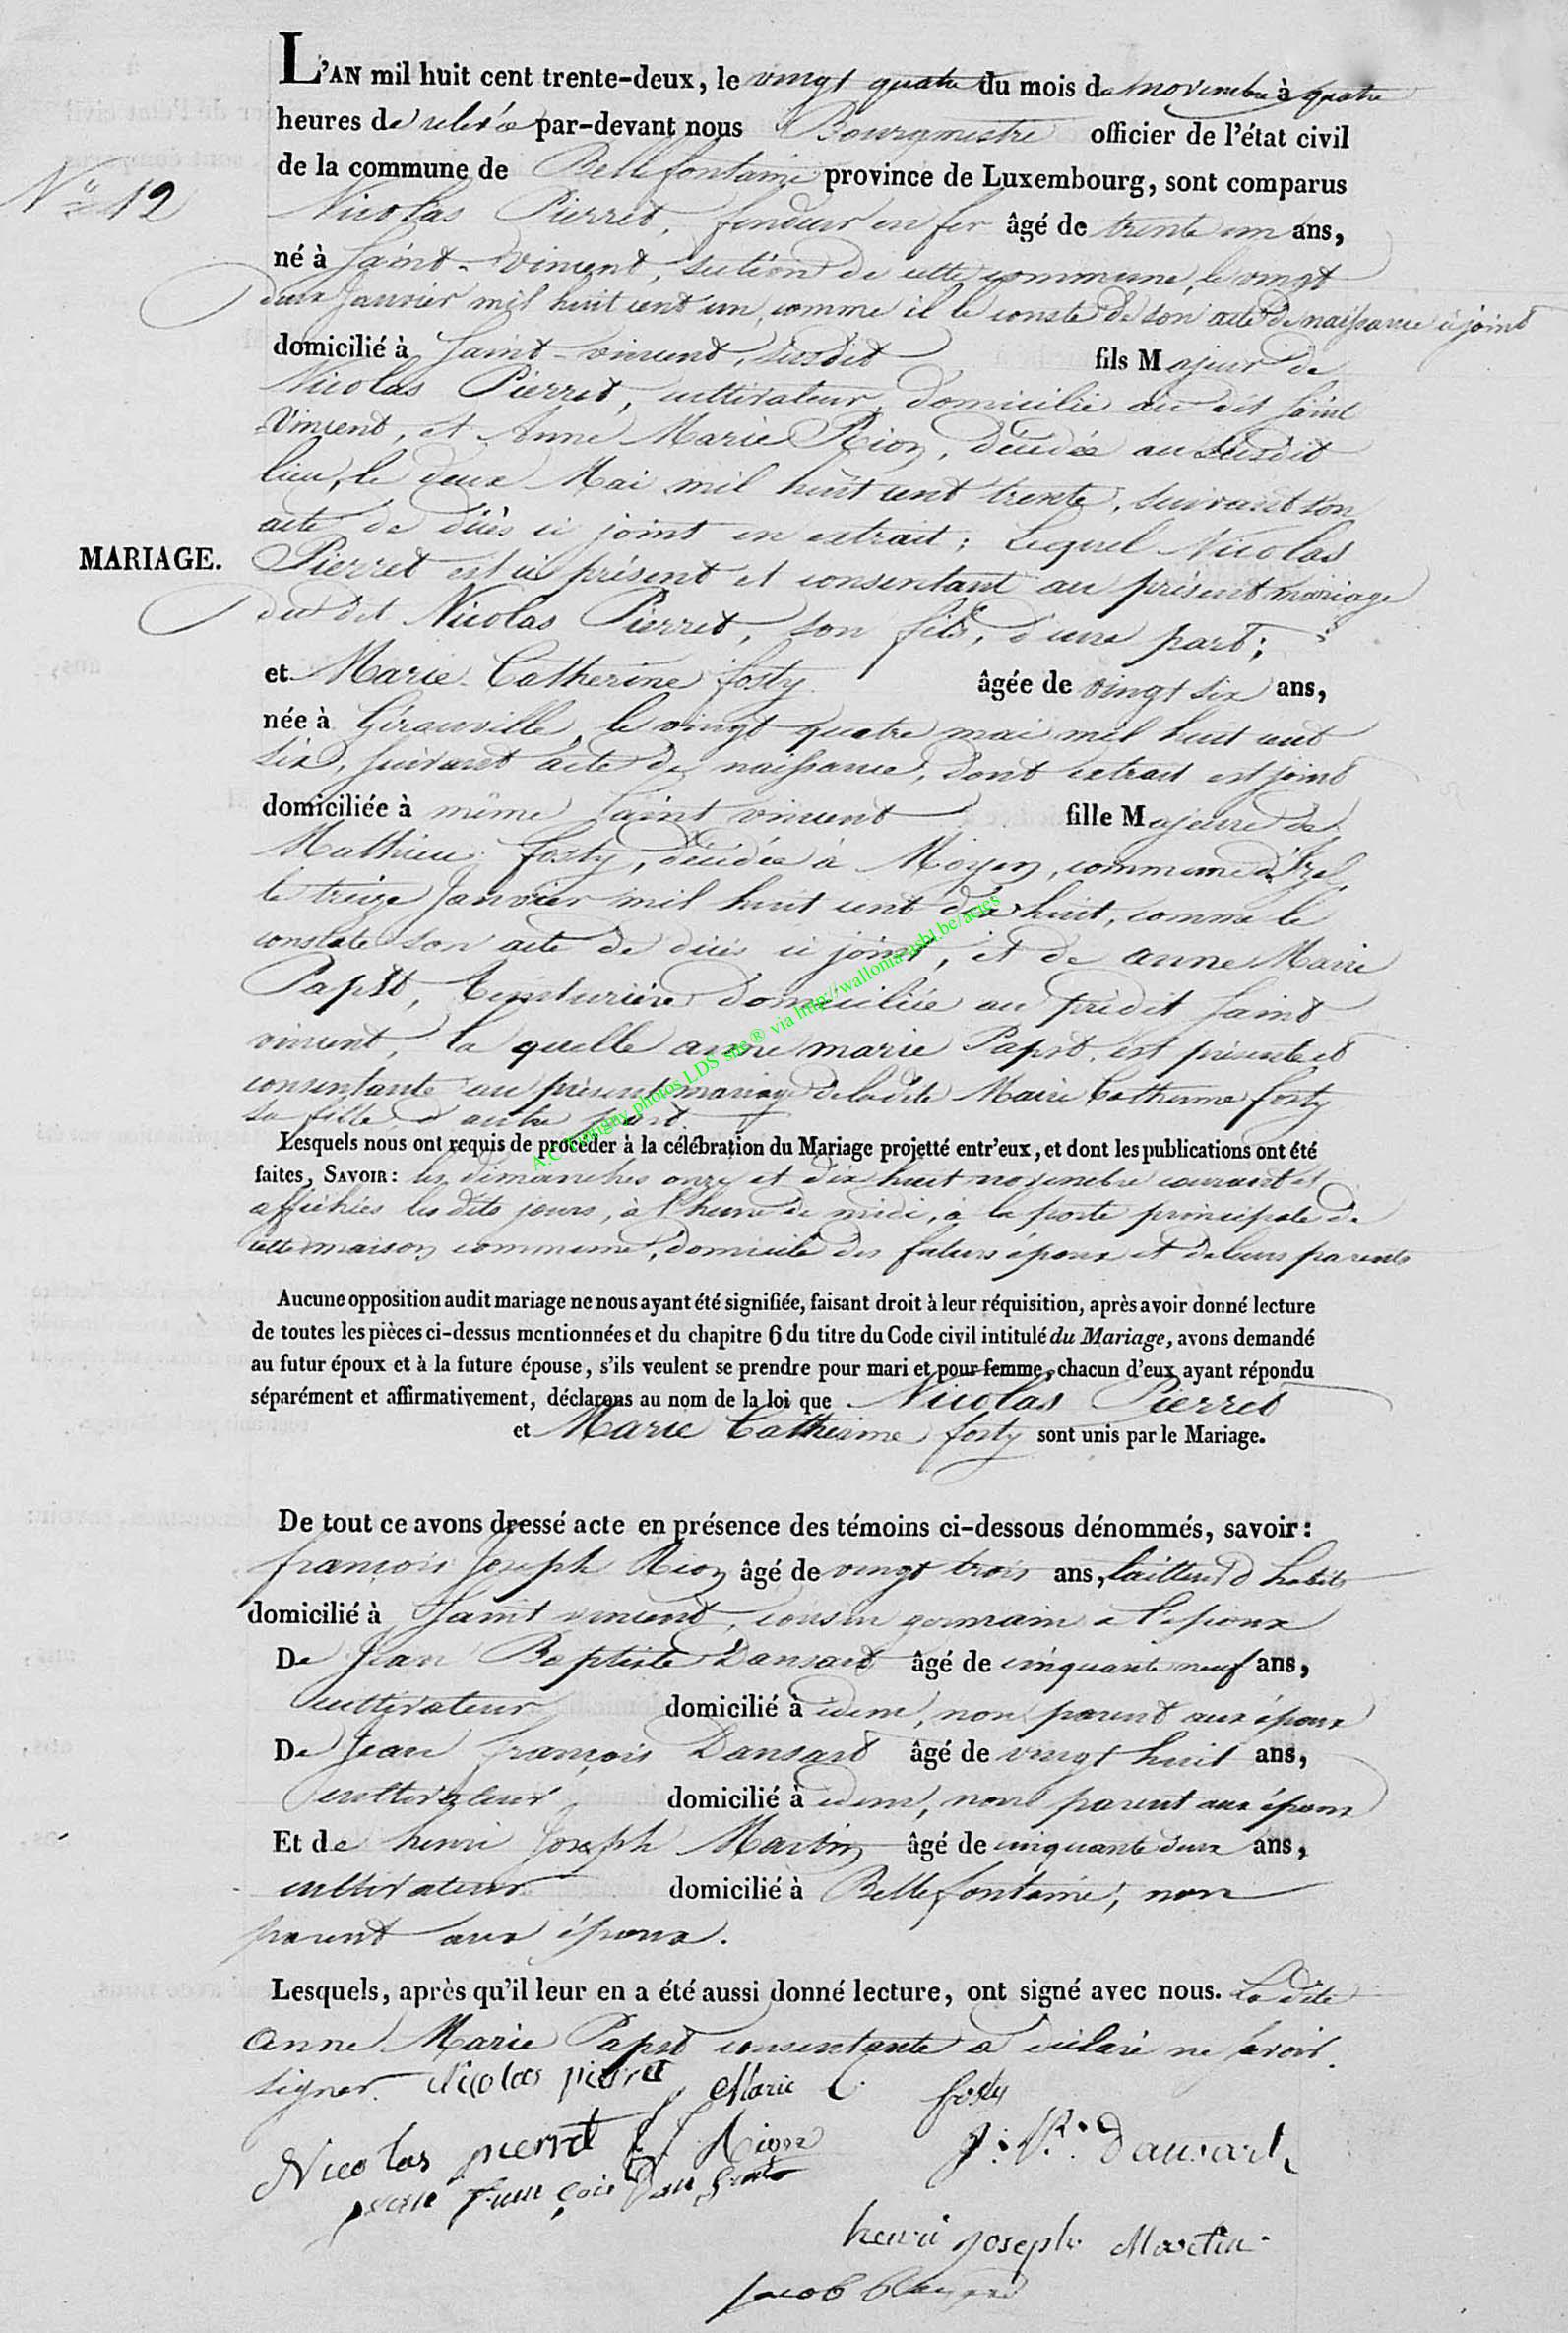 L'AN mil huit cent trente-deux, le vingt quatre du mois de novembre à quatre
heures de relevée par-devant nous Bourgmestre officier de l'état civil
de la commune de Bellefontaine province de Luxembourg, sont comparus
N° 12
Nicolas Pierret, fondeur en fer âgé de trente un ans,
né à Saint-Vincent, section de cette commune, le vingt
deux Janvier mil huit cent un, comme il le conste de son acte de naissance ci joint
domicilié à Saint-vincent, susdit fils Majeur de
Nicolas Pierret, cultivateur, domicilié au dit Saint
Vincent, et Anne Marie Rion, décédée au susdit
lieu, le deux Mai mil huit cent trente, suivant son
acte de décès ci joint en extrait; Lequel Nicolas
MARIAGE.
Pierret est ici présent et consentant au présent mariage
du dit Nicolas Pierret, son fils, d'une part;
et Marie Catherine fosty âgée de vingt six ans,
née à Gérouville, le vingt quatre mai mil huit cent
six, suivant acte de naissance, dont extrait est joint
domiciliée à même Saint vincent fille Majeure de
Mathieu fosty, décédé à Moyen, commune d'Izel,
le treize Janvier mil huit cent dix huit, comme le
constate son acte de décès ci joint, et de anne Marie
Papst, teinturière domiciliée au prédit Saint
vincent, la quelle anne marie Papst est présente et
consentante au présent mariage de la dite Marie Catherine fosty
sa fille d'autre part.
A.C. photos LDS site ® via http://wallonia-asbl.be/actes
Lesquels nous ont requis de procéder à la célébration du Mariage projetté entr'eux, et dont les publications ont été
faites, SAVOIR: les dimanches onze et dix huit novembre courant et
affichées les dits jours, à l'heure de midi, à la porte principale de
cette maison commune, domicile des futurs époux et de leurs parents
Aucune opposition audit mariage ne nous ayant été signifiée, faisant droit à leur réquisition, après avoir donné lecture
de toutes les pièces ci-dessus mentionnées et du chapitre 6 du titre du Code civil intitulé du Mariage, avons demandé
au futur époux et à la future épouse, s'ils veulent se prendre pour mari et pour femme, chacun d'eux ayant répondu
séparément et affirmativement, déclarons au nom de la loi que Nicolas Pierret
et Marie Catherine fosty sont unis par le Mariage.
De tout ce avons dressé acte en présence des témoins ci-dessous dénommés, savoir:
françois Joseph Rion âgé de vingt trois ans, tailleur d'habits
domicilié à Saint vincent, cousin germain à l'époux
De Jean Baptiste Dansart âgé de cinquante neuf ans,
cultivateur domicilié à idem, non parent aux époux
De Jean françois Dansart âgé de vingt huit ans,
cultivateur domicilié à idem, non parent aux époux
Et de henri Joseph Martin âgé de cinquante deux ans,
cultivateur domicilié à Bellefontaine, non
parent aux époux.
Lesquels, après qu'il leur en a été aussi donné lecture, ont signé avec nous. La dite
anne Marie Papst consentante a déclaré ne savoir
signer. Nicolas pierret Marie C. fosty
Nicolas pierret f J Rion J. B. Dansart
jean françois Dansart
henri joseph Martin
jacob